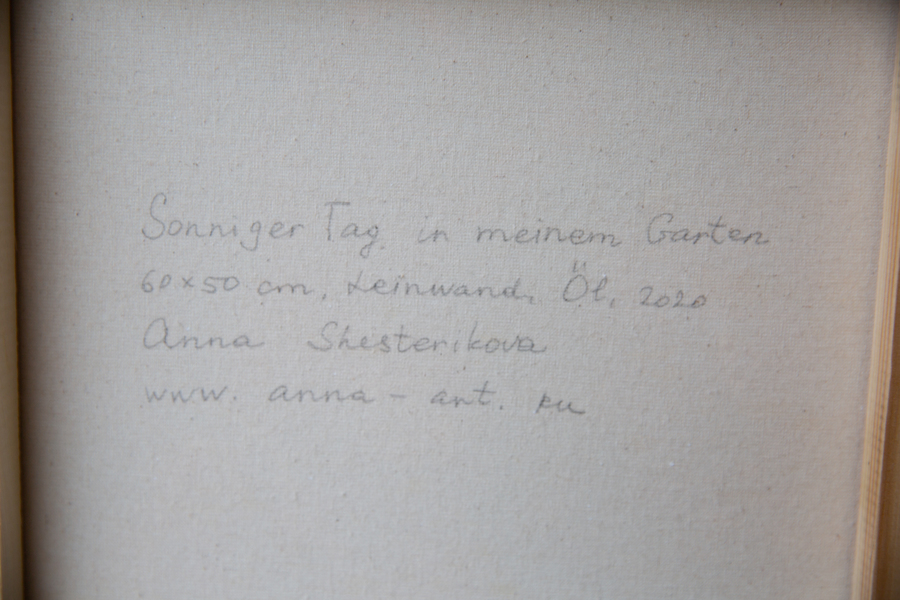 Sonniger Tag in meinem Garten
60x50 cm, Leinwand, Öl, 2020
Anna Shesterikova
www. anna - art. ru